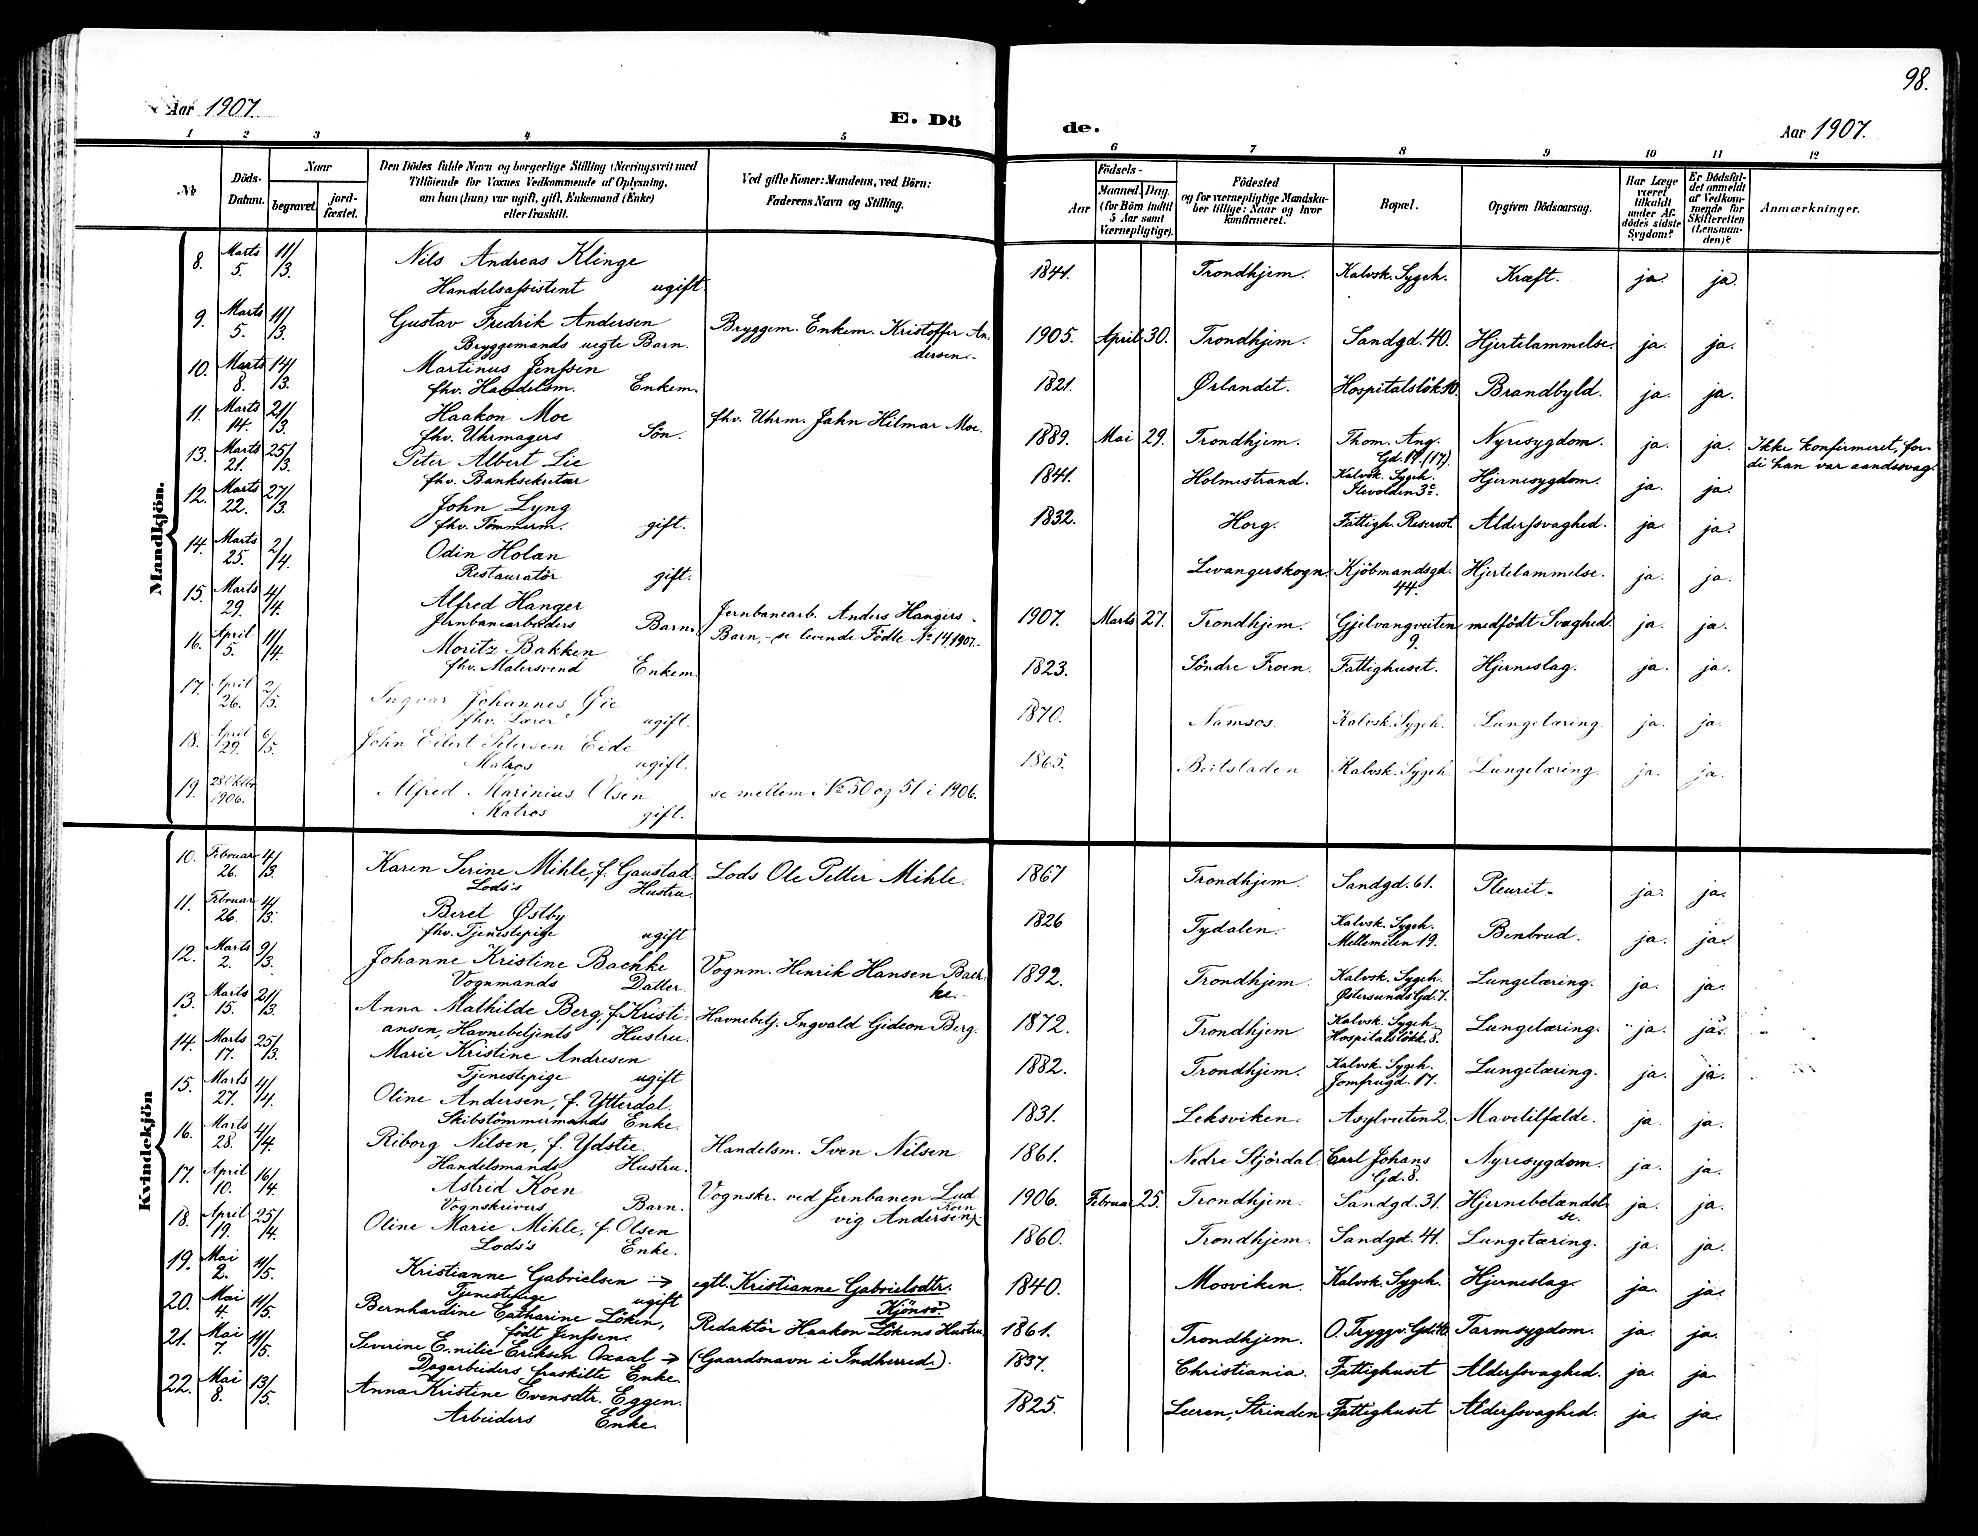 98.
Aar 1907.
E. Dö
de.
Aar 1907.
1 2 3 4 5 6 7 8 9 10 11 12
No
Döds-
Datum.
Naar
begravet.
jord-
fæstet.
Den Dödes fulde Navn og borgerlige Stilling (Næringsvei) med
Tilföiende for Voxnes Vedkommende af Oplysning,
om han (hun) var ugift, gift, Enkemand (Enke)
eller fraskilt.
Ved gifte Koner: Mandens, ved Börn:
Faderens Navn og Stilling.
Födsels-
Aar
Maaned. Dag.
(for Börn indtil
5 Aar samt
Værnepligtige).
Födested
og for værnepligtige Mandsku-
ber tillige: Naar og hvor
konfirmeret.
Bopæl.
Opgiven Dödsaarsag.
Har Læge
været
tilkaldt
under Af-
dödes sidste
Sygdom?
Er Dödsfal-
det anmeldt
af Vedkom-
mende for
Skifteretten
(Lensman-
den)?
Anmærkninger.
Mandkjön.
8. Marts 5. 11/3. Nils Andreas Klinge
Handelsassistent ugift.
1841. Trondhjem. Kalvsk. Sygeh. Kræft. ja. ja.
9. Marts 5. 11/3. Gustav Fredrik Andersen
Bryggemands uegte Barn.
Bryggem. Enkem. Kristoffer An-
dersen.
1905. April 30. Trondhjem. Sandgd. 40. Hjertelammelse. ja. ja.
10. Marts 8. 14/3. Martinus Jenssen
fhv. Handelsm. Enkem.
1821. Ørlandet. Hospitalslök 10. Brandbyld. ja. ja.
11. Marts 14. 21/3. Haakon Moe
fhv. Uhrmagers Sön.
fhv. Uhrm. Jahn Hilmar Moe.
1889. Mai 29. Trondhjem. Thom. Ang.
Gd. 17. (17). Nyresygdom. ja. ja. Ikke konfirmeret, for-
di han var aandssvag.
13. Marts 21. 25/3. Peter Albert Lie
fhv. Banksekretær
1841. Holmestrand. Kalvsk. Sygeh.
Ilevolden 3c. Hjernesygdom. ja. ja.
12. Marts 22. 27/3. John Lyng
fhv. Tömmerm. gift.
1832. Horg. Fattigh. Reservet. Alderssvaghed. ja. ja.
14. Marts 25. 2/4. Odin Holan
Restauratør gift.
Levangerskogn. Kjöbmandsgd.
44. Hjertelammelse. ja. ja.
15. Marts 29. 4/4. Alfred Hanger
Jernbanearbeiders Barn.
Jernbanearb. Anders Hangers
Barn, - se levende Födte No 14, 1907.
1907. Marts 27. Trondhjem. Gjelvangveiten
9. medfödt Svaghed ja. ja.
16. April 5. 11/4. Moritz Bakken
fhv. Malersvend Enkem.
1823. Söndre Froen. Fattighuset. Hjerneslag. ja. ja.
17. April 26. 2/5. Ingvar Johannes Øie
fhv. Lærer ugift.
1870. Namsos. Kalvsk. Sygeh. Lungetæring. ja. ja.
18. April 29. 6/5. John Eilert Petersen Eide
Matros ugift.
1865. Beitstaden Kalvsk. Sygeh. Lungetæring. ja. ja.
19. 28 Oktbr.
1906. Alfred Marinius Olsen
Matros gift.
se mellem No 50 og 51 i 1906.
Kvindekjön
10. Februar 26. 4/3. Karen Serine Mihle, f. Gaustad.
Lods's Hustru.
Lods Ole Petter Mihle.
1867 Trondhjem. Sandgd. 61. Pleurit. ja. ja.
11. Februar 26. 4/3. Beret Østby
fhv. Tjenestepige ugift
1826 Tydalen. Kalvsk. Sygeh.
Mellemilen 19. Benbrud. ja. ja.
12. Marts 2. 9/3. Johanne Kristine Bachke
Vognmands Datter.
Vognm. Henrik Hansen Bach-
ke.
1892. Trondhjem. Kalvsk. Sygeh.
Østersunds Gd. 7. Lungetæring. ja. ja.
13. Marts 15. 21/3. Anna Mathilde Berg, f. Kristi-
ansen, Havnebetjents Hustru.
Havnebetj. Ingvald Gideon Berg.
1872. Trondhjem. Kalvsk. Sygeh.
Hospitalslökk. 8. Lungetæring. ja. ja.
14. Marts 17. 25/3. Marie Kristine Andresen
Tjenestepige ugift
1882. Trondhjem. Kalvsk. Sygeh.
Jomfrugd. 17. Lungetæring. ja. ja.
15. Marts 27. 4/4. Oline Andersen, f. Ytterdal.
Skibstömmermands Enke.
1831. Leksviken. Asylveiten 2. Mavetilfælde. ja. ja.
16. Marts 28. 4/4. Riborg Nilsen, f. Ydstie.
Handelsmands Hustru.
Handelsm. Sven Nilsen
1861. Nedre Stjördal. Carl Johans
Gd. 8. Nyresygdom. ja. ja.
17. April 10. 16/4. Astrid Koen
Vognskrivers Barn.
Vognskr. ved Jernbanen Lud
vig Andersen Koen
1906. Februar 25. Trondhjem. Sandgd. 31. Hjernebetændel-
se. ja. ja.
18. April 19. 25/4. Oline Marie Mihle, f. Olsen
Lods's Enke.
1860. Trondhjem. Sandgd. 41. Lungetæring. ja. ja.
19. Mai 2. 11/5. Kristianne Gabrielsen →
Tjenestepige ugift
egtl. Kristianne Gabrielsdtr.
Kjönsö.
1840. Mosviken. Kalvsk. Sygeh. Hjerneslag. ja. ja.
20. Mai 4. 11/5. Bernhardine Catharine Löken,
födt Jenssen.
Redaktör Haakon Lökens Hustru
1861. Trondhjem. O. Tryggv. Gd. 40. Tarmsygdom. ja. ja.
21. Mai 7. 11/5. Severine Emilie Eriksen Oxaal →
Dagarbeiders fraskilte Enke.
(Gaardsnavn i Indherred.).
1837. Christiania. Fattighuset Alderssvaghed. ja. ja
22. Mai 8. 13/5. Anna Kristine Evensdtr. Eggen.
Arbeiders Enke.
1825. Leeren, Strinden Fattighuset Alderssvaghed. ja. ja.